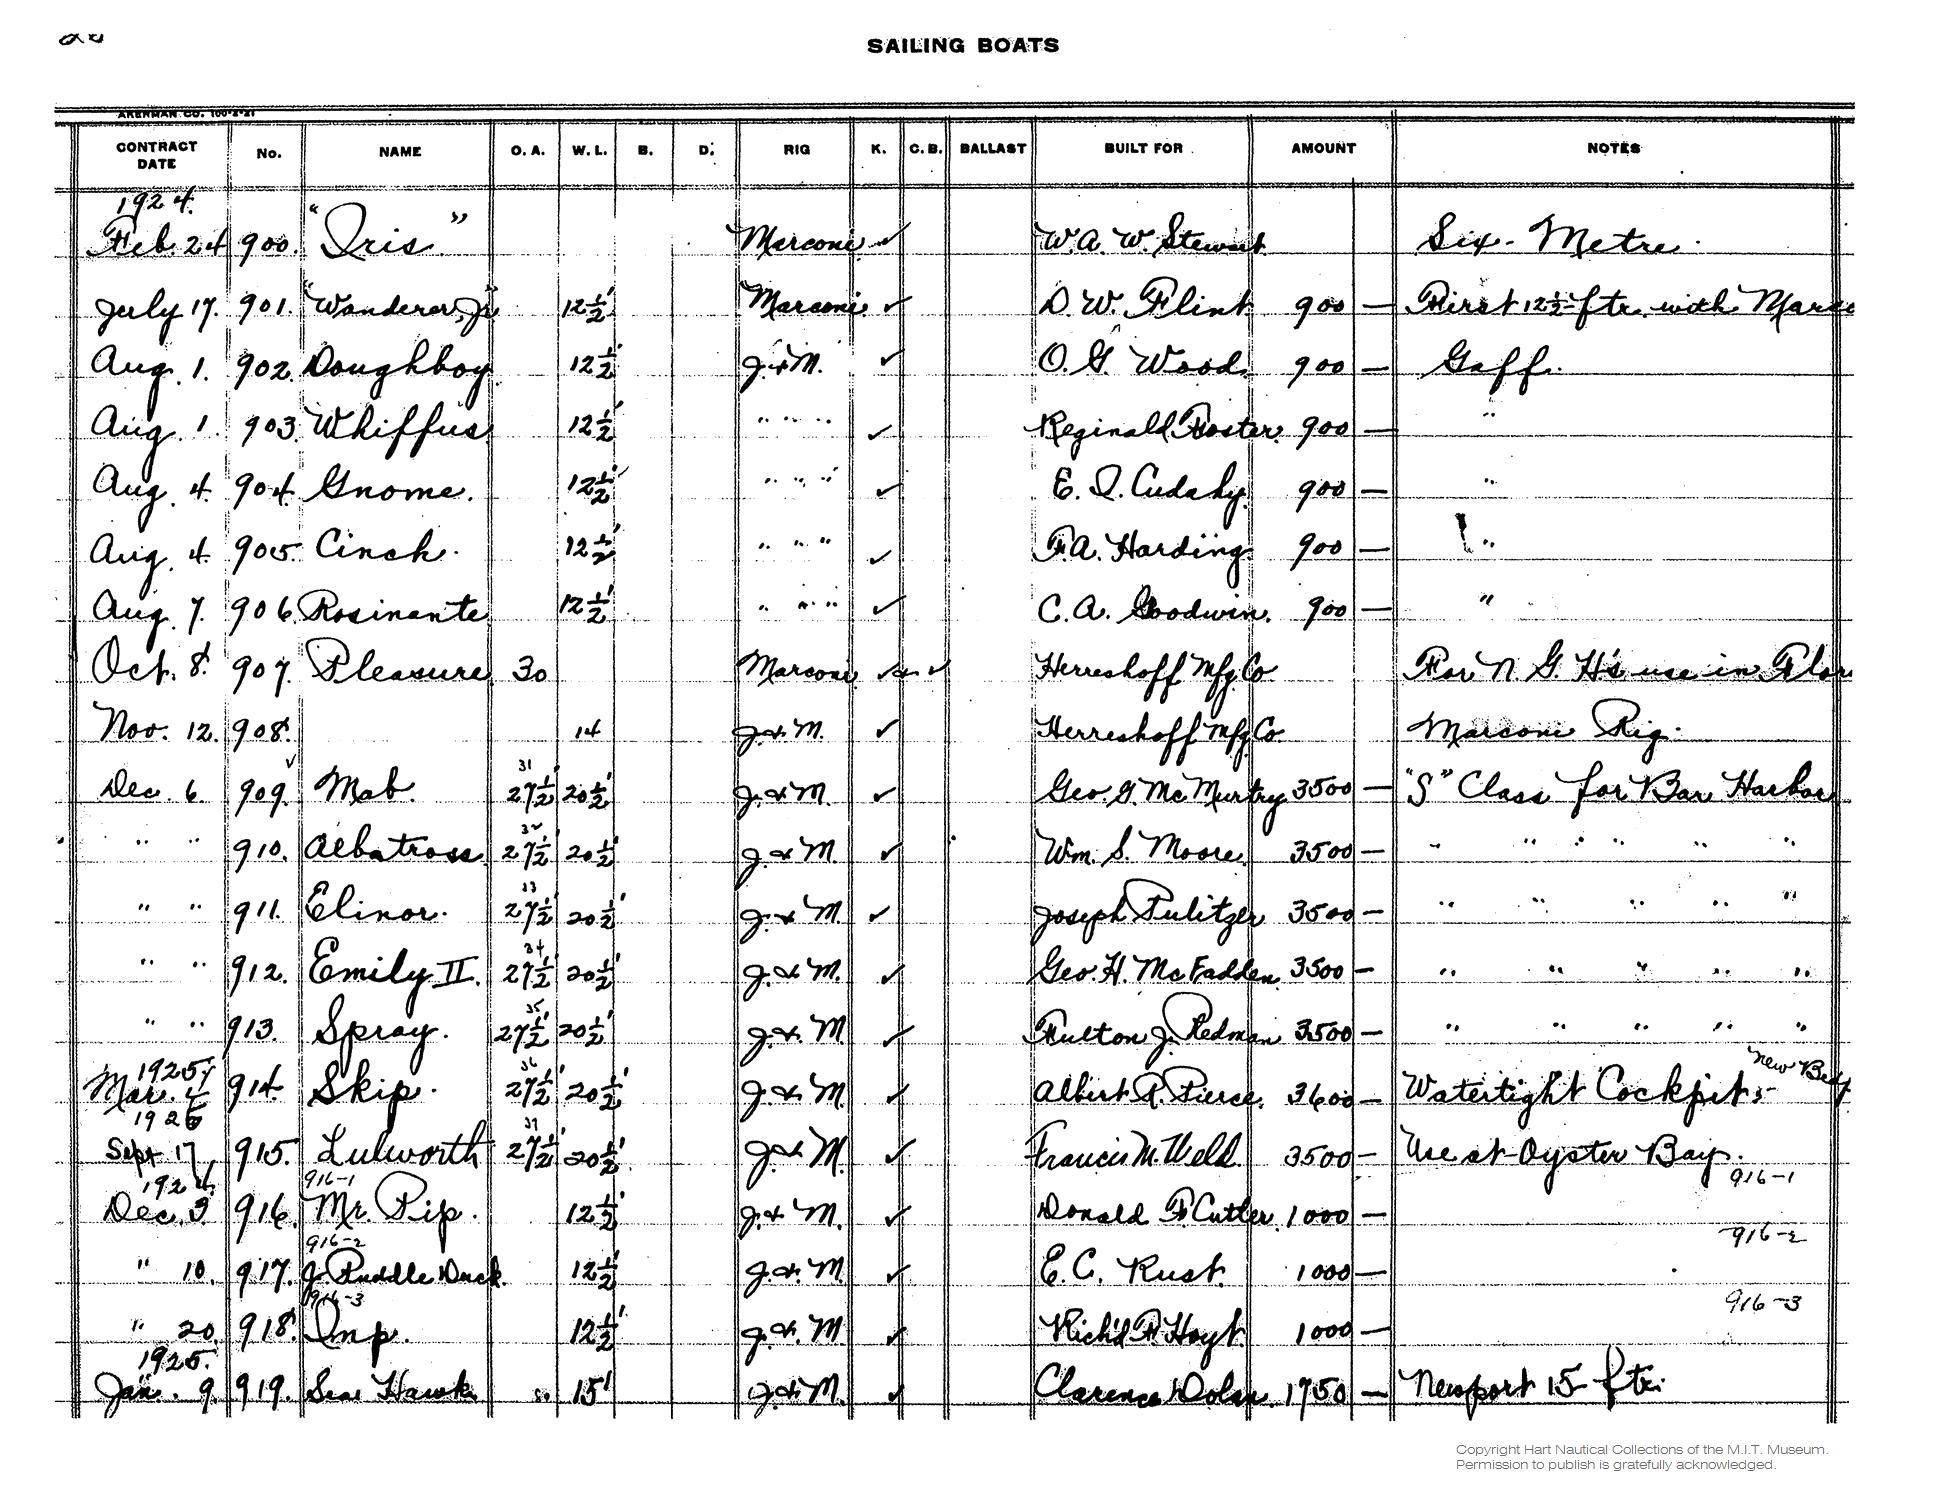 SAILING BOATS
AKERMAN CO. 100-2-21
CONTRACT DATE No. NAME O. A. W. L. B. D. RIG K. C. B. BALLAST BUILT FOR AMOUNT NOTES
1924.
Feb. 24 900. "Iris" Marconi ✓ W. A. W. Stewart Six-Metre.
July 17. 901. "Wanderer, Jr" 12½' Marconi. ✓ D. W. Flint 900 — First 12½ ftr. with Marco
Aug. 1. 902. Doughboy. 12½' J. & M. ✓ O. G. Wood. 900 — Gaff.
Aug. 1. 903. Whiffus 12½' " " " ✓ Reginald Foster. 900 — "
Aug. 4. 904. Gnome. 12½' " " " ✓ E. I. Cudahy. 900 — "
Aug. 4. 905. Cinch. 12½' " " " ✓ F. A. Harding 900 — "
Aug. 7. 906. Rosinante 12½' " " " ✓ C. A. Goodwin. 900 — "
Oct. 8. 907. Pleasure 30 Marconi ✓ & ✓ Herreshoff Mfg. Co For N. G. H's use in Flor
Nov. 12. 908. 14 J. & M. ✓ Herreshoff Mfg. Co. Marconi Rig.
31
Dec. 6. 909. Mab. 27½' 20½' J. & M. ✓ Geo. G. McMurtry 3500 — "S" Class for Bar Harbor
32
" " 910. Albatross. 27½' 20½' J. & M. ✓ Wm. S. Moore. 3500 — " " " " " "
33
" " 911. Elinor. 27½' 20½' J. & M. ✓ Joseph Pulitzer 3500 — " " " " "
34
" " 912. Emily II. 27½' 20½' J. & M. ✓ Geo. H. McFadden. 3500 — " " " " "
35
" " 913. Spray. 27½' 20½' J. & M. ✓ Fulton J. Redman 3500 — " " " " "
1925 36 New Bedf
Mar. 914. Skip. 27½' 20½' J. & M. ✓ Albert R. Pierce. 3600 — Watertight Cockpit
37
Sept 17, 915. Lulworth 27½' 20½' J. & M. ✓ Francis M. Weld 3500 — Use at Oyster Bay.
1924. 916-1 916-1
Dec. 3. 916. Mr. Pip. 12½' J. & M. ✓ Donald F. Cutler. 1000 —
916-2 916-2
" 10. 917. J. Puddle Duck. 12½' J. & M. ✓ E. C. Rust. 1000 —
916-3 916-3
" 20. 918. Imp. 12½' J. & M. ✓ Rich'd F. Hoyt. 1000 —
1925.
Jan. 9. 919. Sea Hawk. 15' J. & M. ✓ Clarence Dolan. 1750 — Newport 15-ftr.
Copyright Hart Nautical Collections of the M.I.T. Museum.
Permission to publish is gratefully acknowledged.